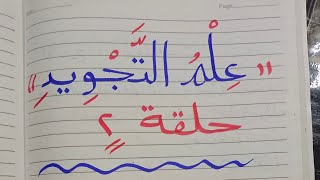 Page
" عِلْمُ التَّجْوِيدِ "
حلقة ٢